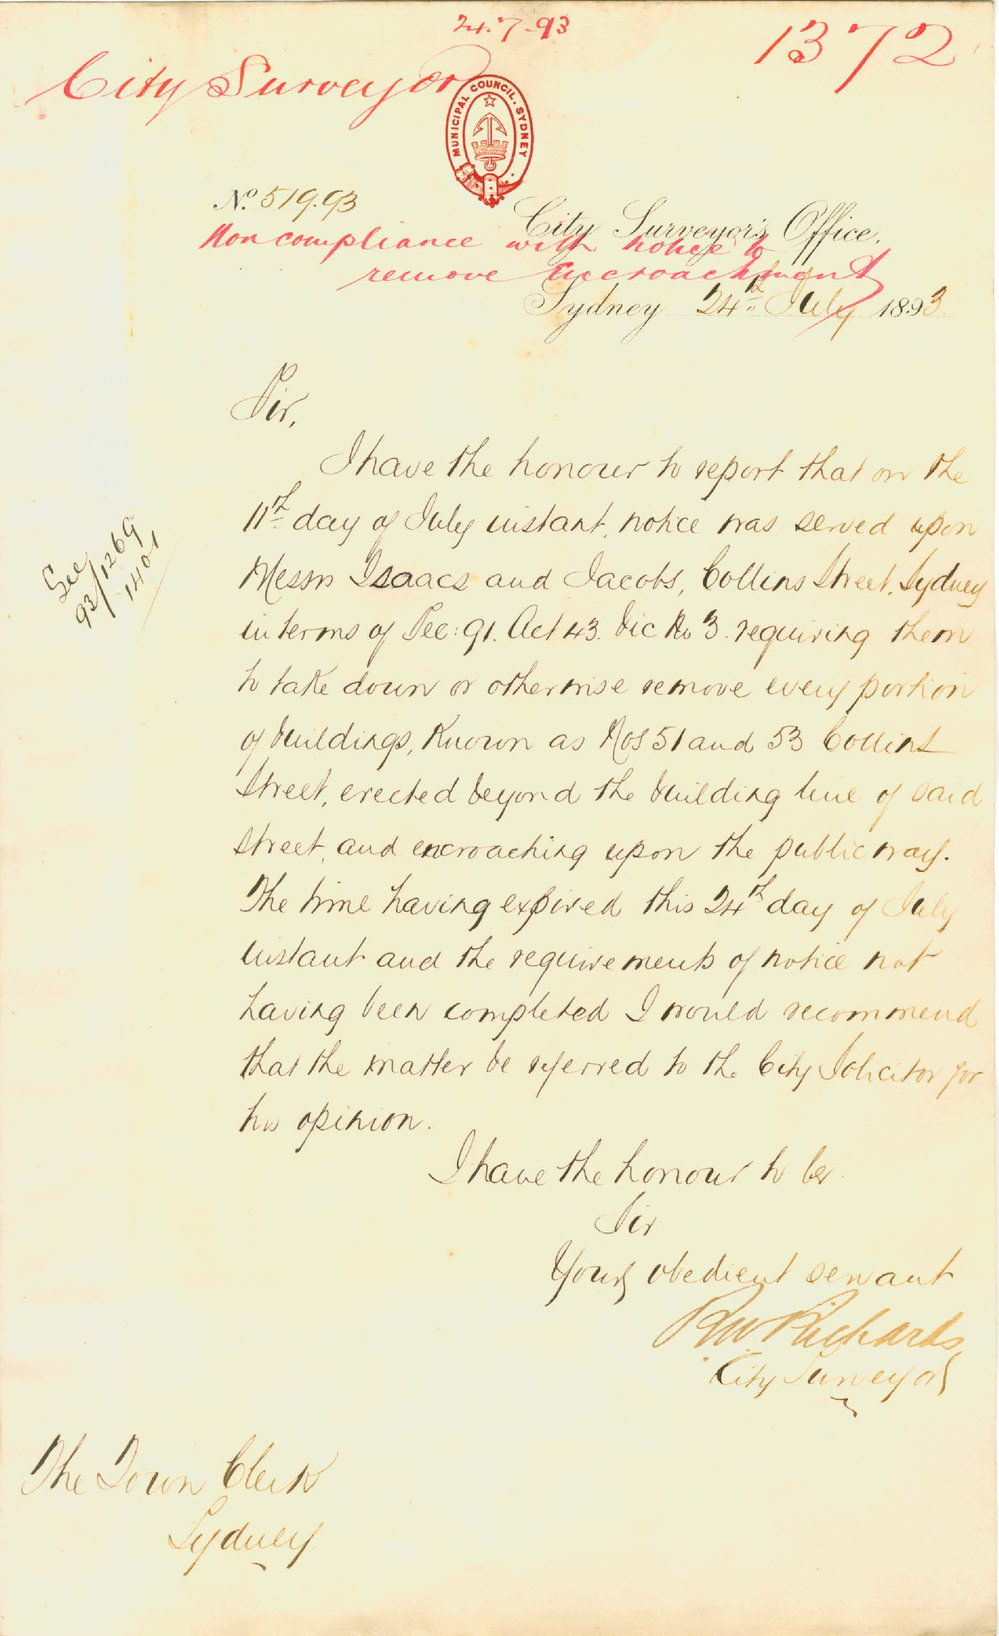 24.7.93
1372
City Surveyor
MUNICIPAL COUNCIL. SYDNEY
No. 519.93
City Surveyor's Office,
Non compliance with notice to
remove encroachment
Sydney 24th July 1893
Sir,
I have the honour to report that on the
11th day of July instant, notice was served upon
Messrs Isaacs and Jacobs, Collins Street, Sydney
in terms of Sec: 91. Act 43. Vic No 3. requiring them
to take down or otherwise remove every portion
of buildings, known as Nos 51 and 53 Collins
Street, erected beyond the building line of said
street, and encroaching upon the public way.
The time having expired this 24th day of July
instant and the requirements of notice not
having been completed I would recommend
that the matter be referred to the City Solicitor for
his opinion.
See
93/1269
1401
I have the honour to be
Sir
Your obedient servant
RW Richards
City Surveyor
The Town Clerk
Sydney